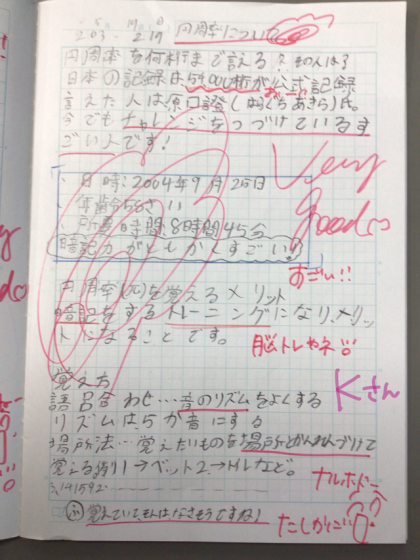 2.03 - 2.19 円周率について
円周率を何桁まで言える？その人は？
日本の記録は54000桁が公式記録
おー!!
言えた人は原口證(はらぐちあきら)氏。
今でもチャレンジをつづけているす
ごい人です！
Very good
日時:2004年9月25日
年齢59さい
所要時間:8時間45分
暗記力がとにかくすごい！
すごい!!
円周率(π)を覚えるメリット
暗記をするトレーニングになり、メリッ
トになることです。
脳トレやネ!!
覚え方
Kさん
語呂合わせ…音のリズムをよくする
リズムは5か音にする
場所法…覚えたいものを場所とかんれんづけて
覚える 例)1→ベット2→トイレなど。
ナルホドー
3.141592
ふ 覚えていて、そんはなさそうですね！
たしかに